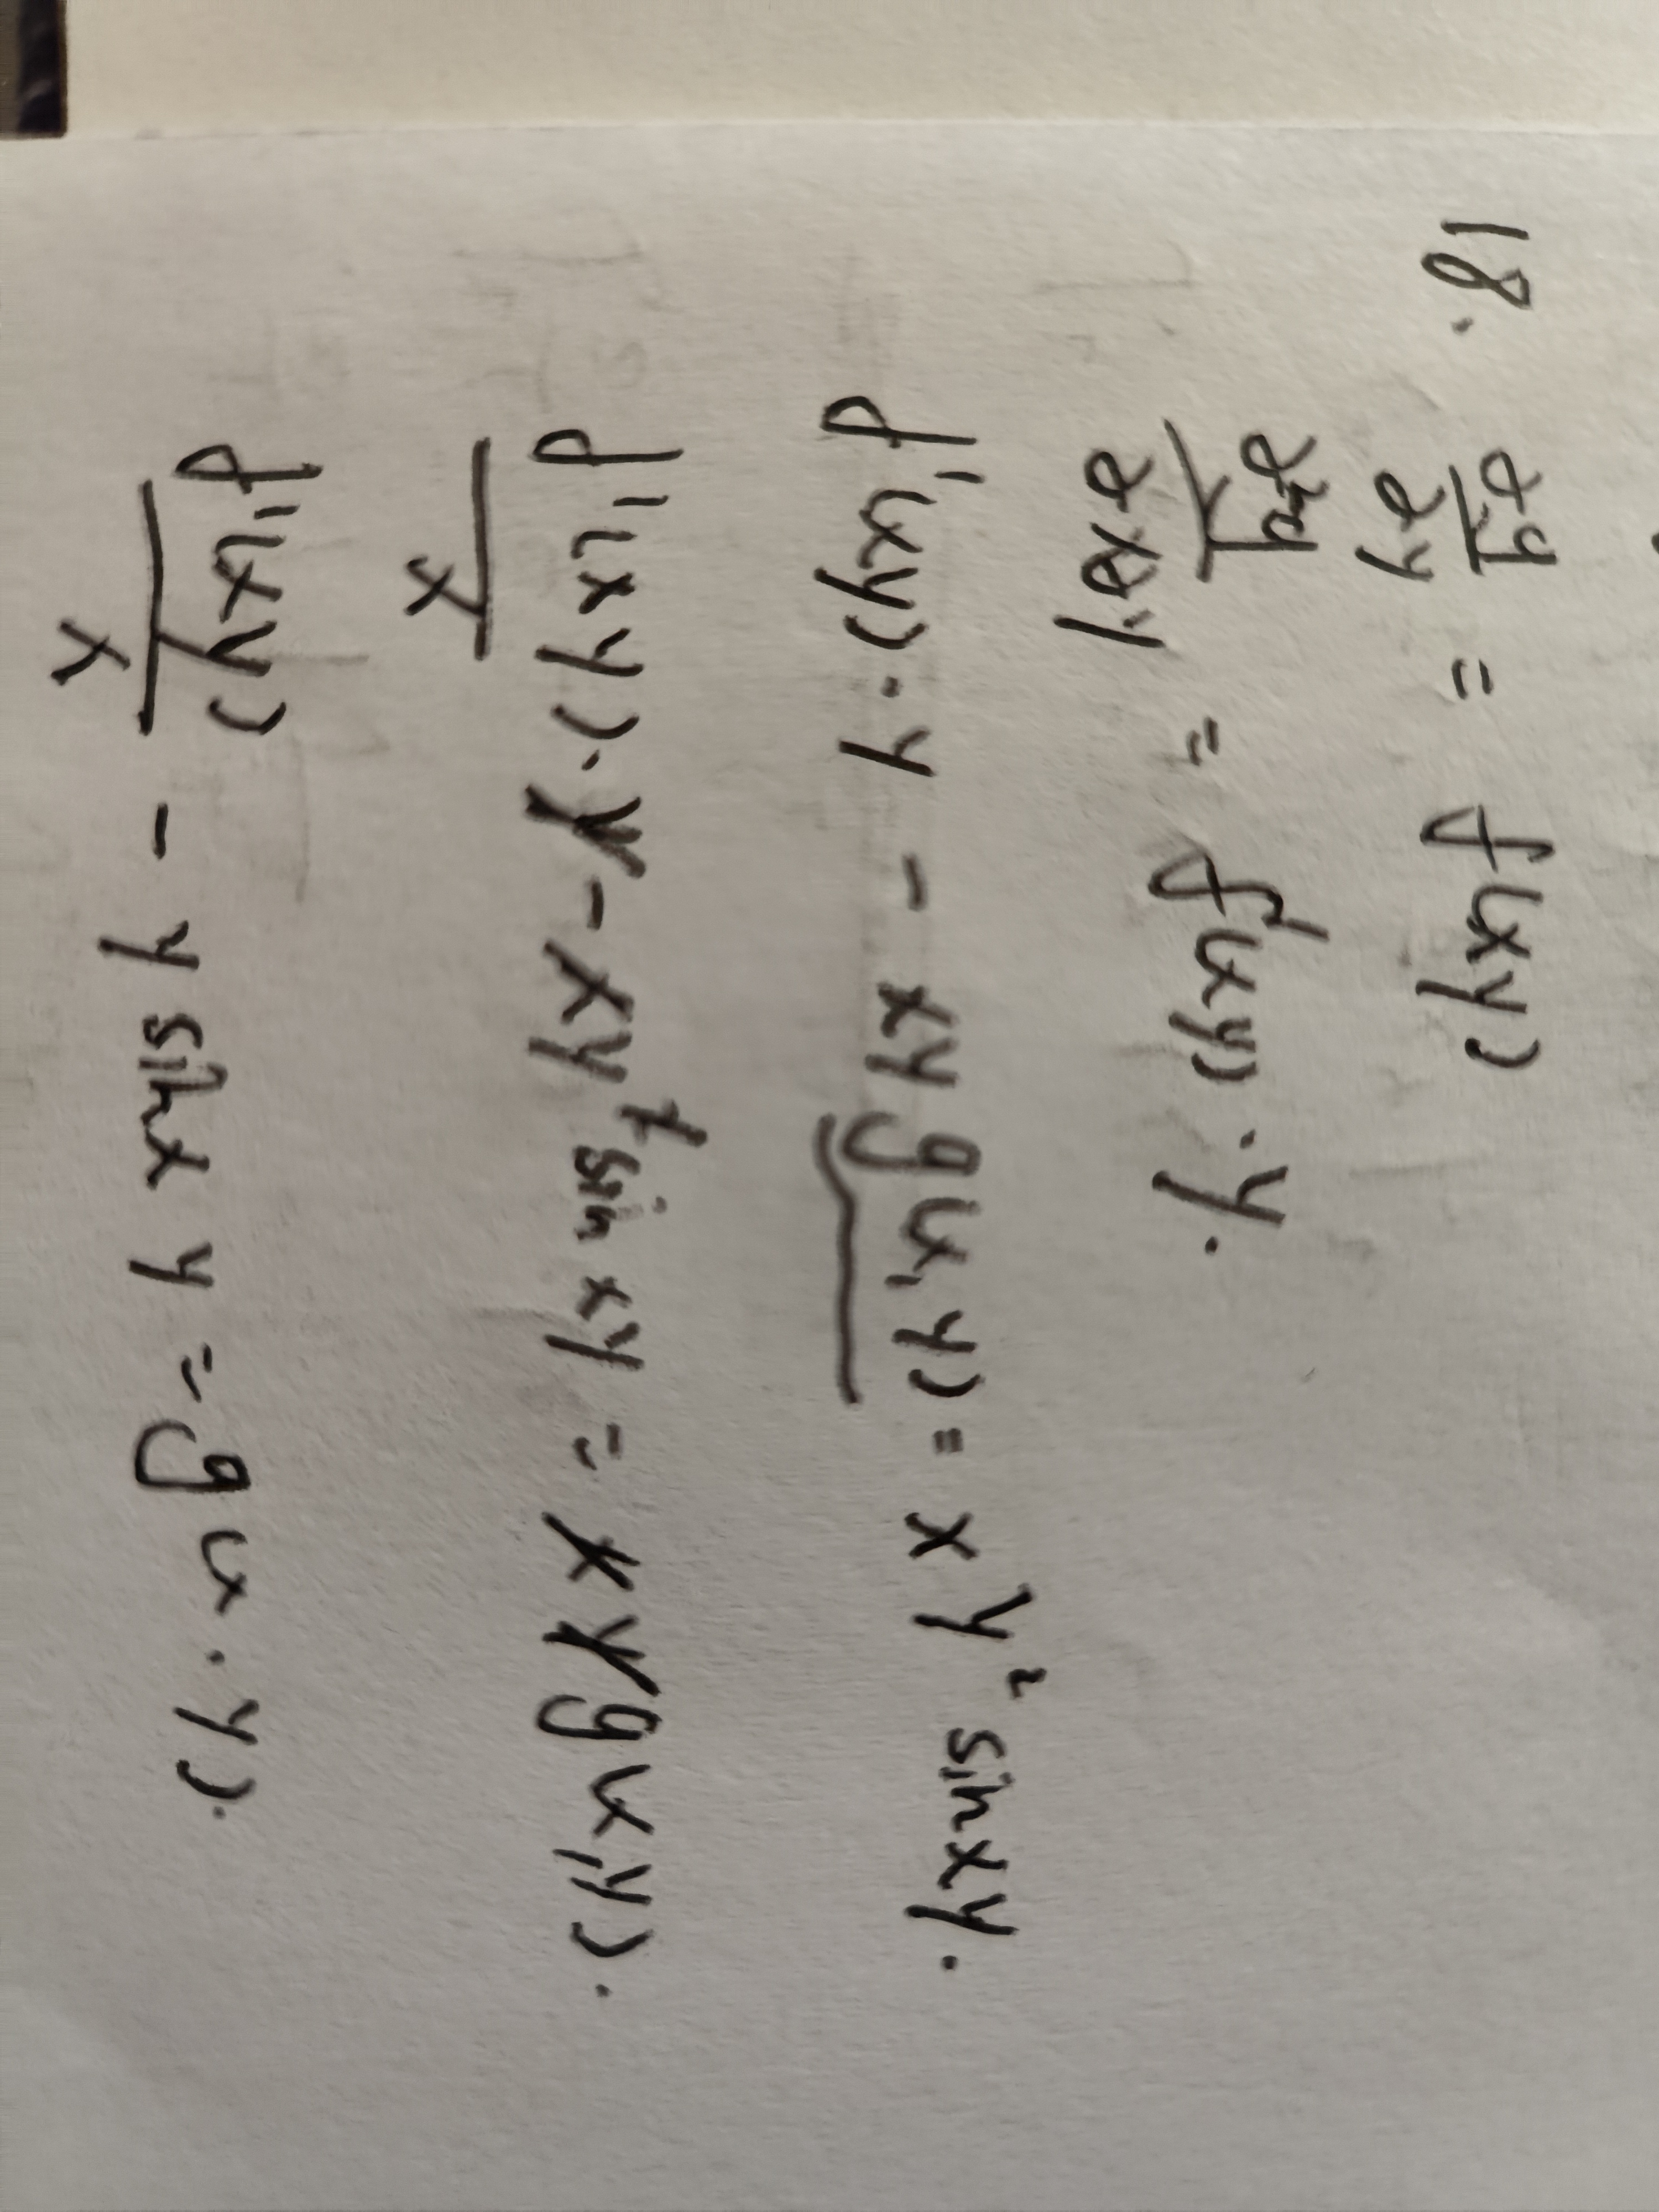 18. ∂g/∂y = f(xy)
∂²g/∂x∂y = f'(xy)·y.
f'(xy)·y - xy g(x,y) = xy² sin xy.
f'(xy)·y - xy² sin xy = xy g(x,y).
f'(xy)/x - y sin x y = g(x·y).